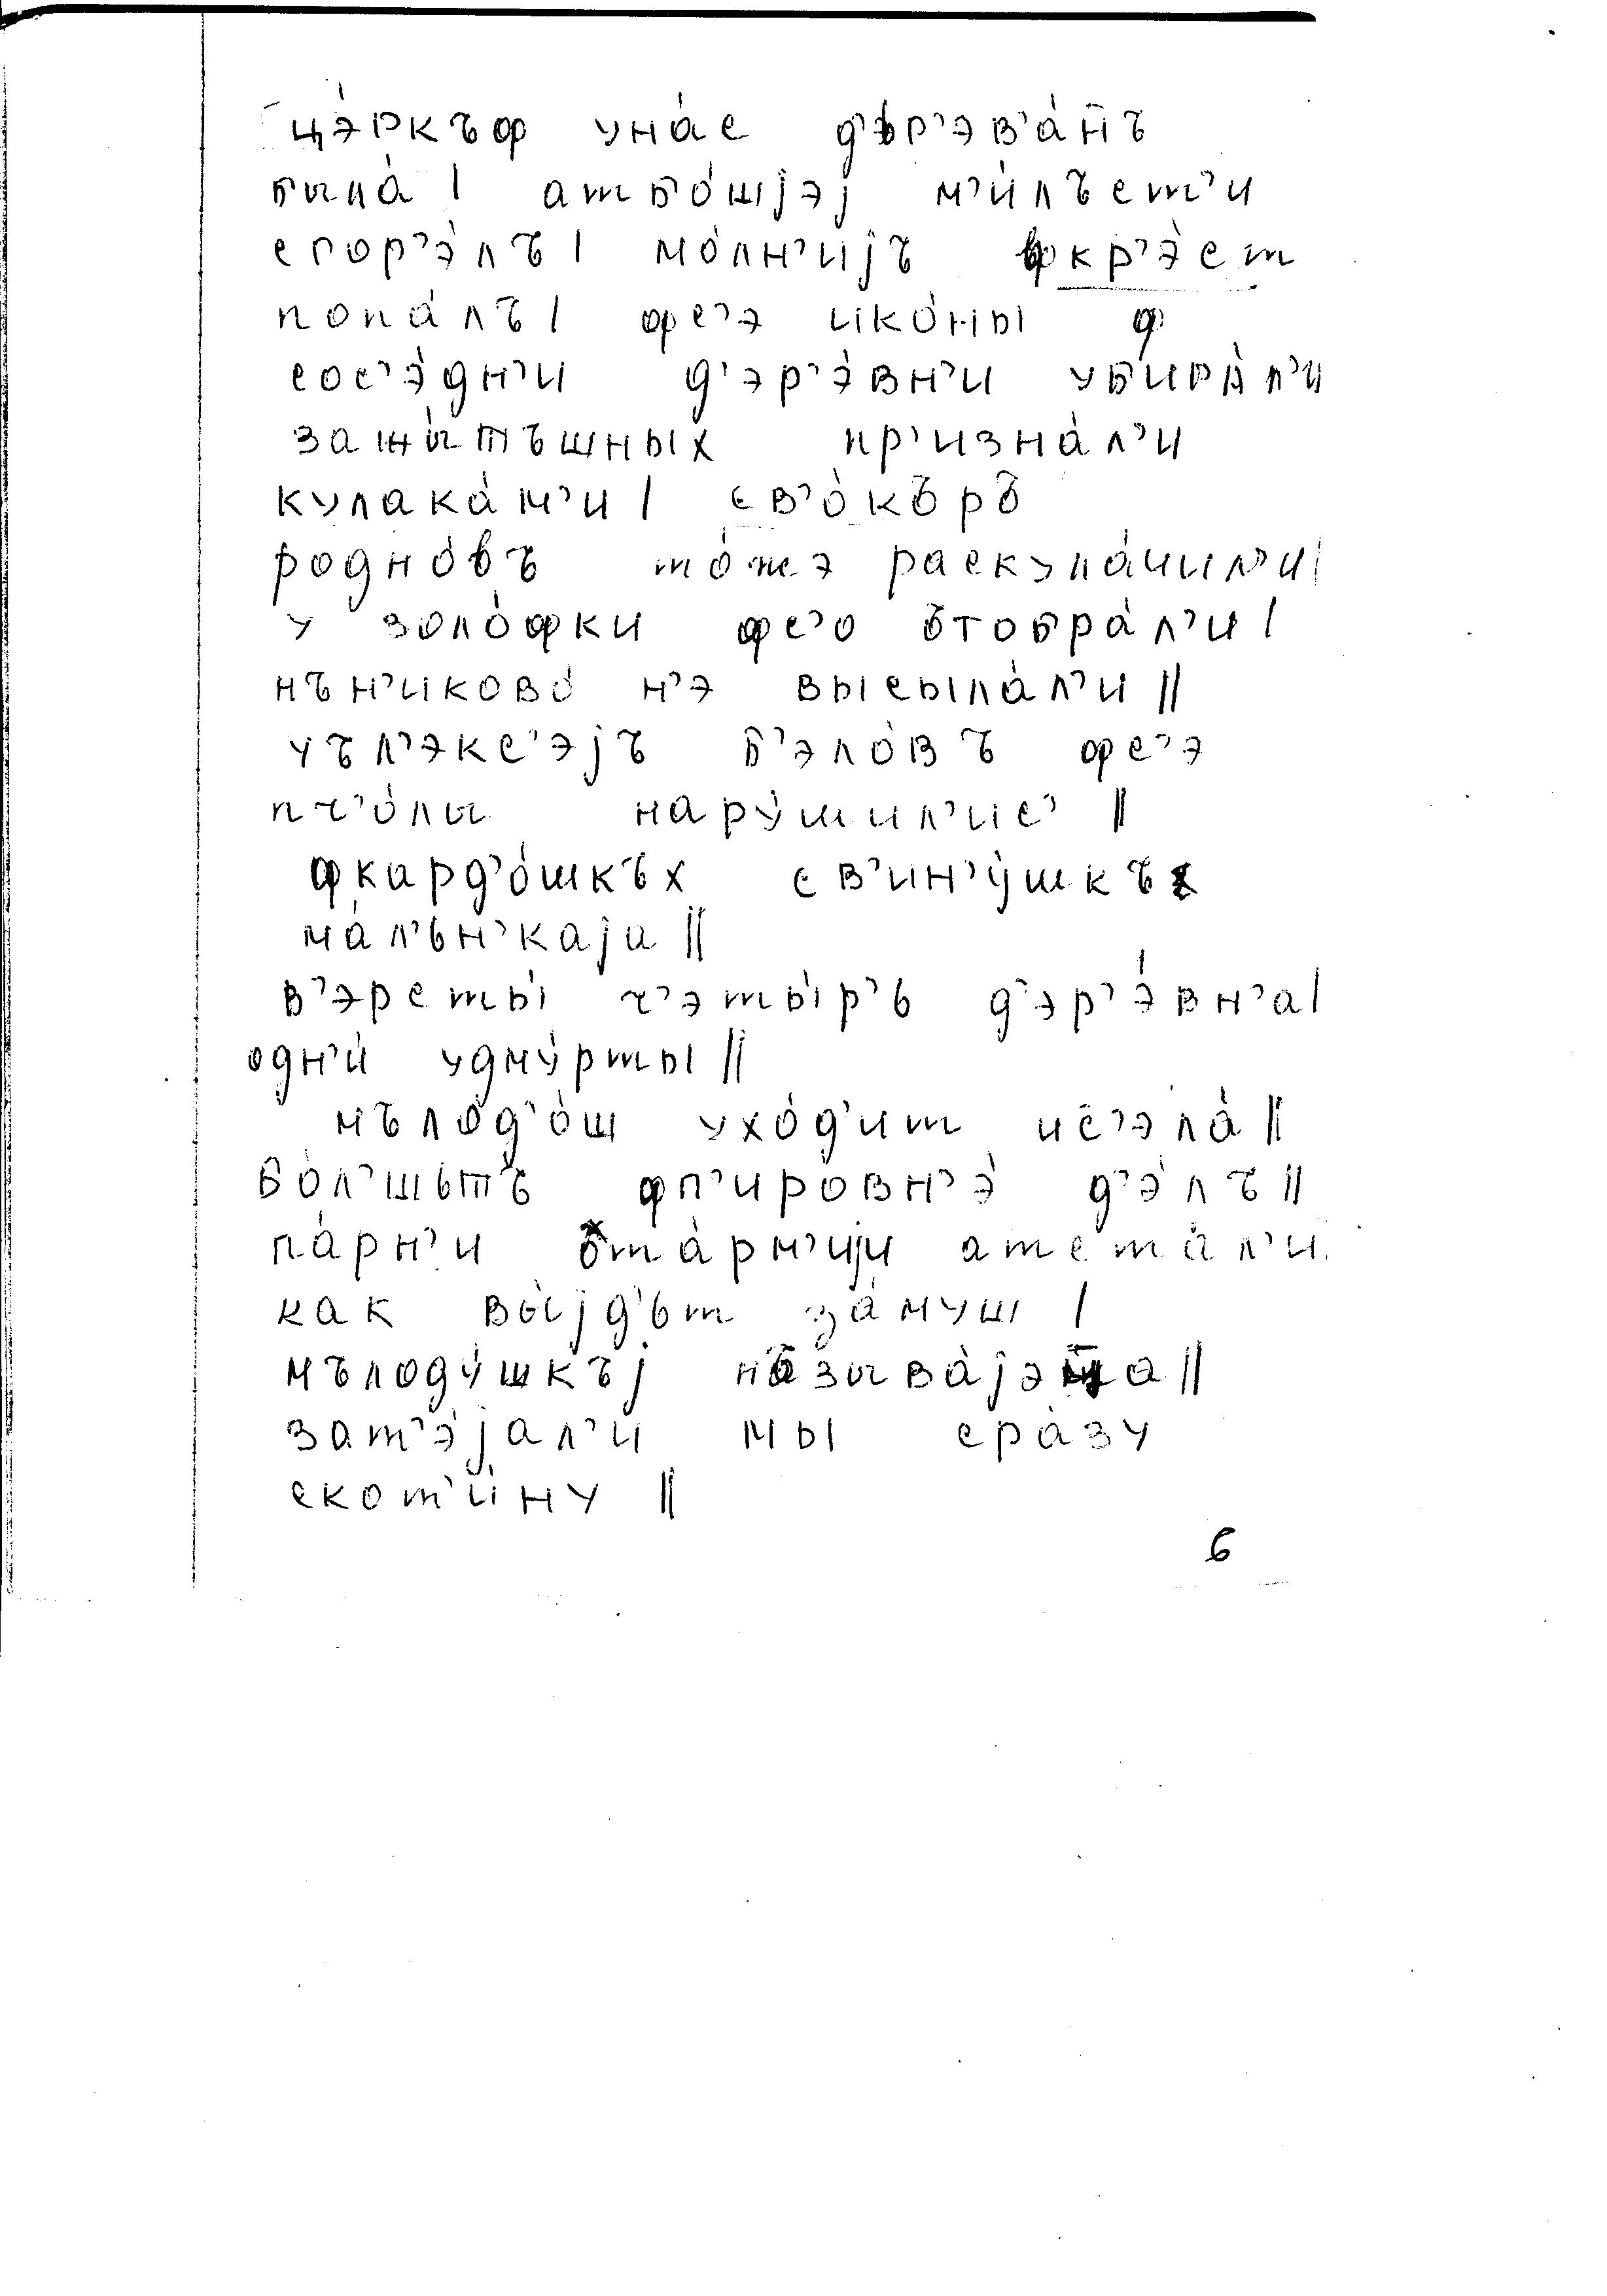 цэ́ркъф уна́с д'ър'эв'а́нъ
была́ | атбо́шјэј м'и́лъст'и
сгор'э́лъ | мо́лн'ијъ фкр'э́ст
попа́лъ | фс'э ико́ны ф
сос'э́дн'и д'эр'э́вн'и убира́л'и
зажы́тъшных пр'изна́л'и
кулака́м'и | св'о́къръ
родно́въ то́жэ раскула́чил'и |
у золо́фки фс'о ътобра́л'и |
нън'иково́ н'э высыла́л'и ||
уъл'эксэ'јъ б'эло́въ фс'э
пч'о́лы нару́шил'ис' ||
фкард'о́шкъх св'ин'у́шкъ
ма́л'ън'каја ||
в'эрсты́ ч'эты́р'ь д'эр'э́вн'а |
одн'и́ удму́рты ||
мълод'о́ш ухо́д'ит ис'эла́ ||
бо́л'шытъ фп'ировн'э́ д'э́лъ ||
па́рн'и ъта́рм'ији атста́л'и
как вы́јд'ът за́муш |
мълоду́шкъј называ́јэца ||
зат'э́јал'и мы сра́зу
скот'и́ну ||
6